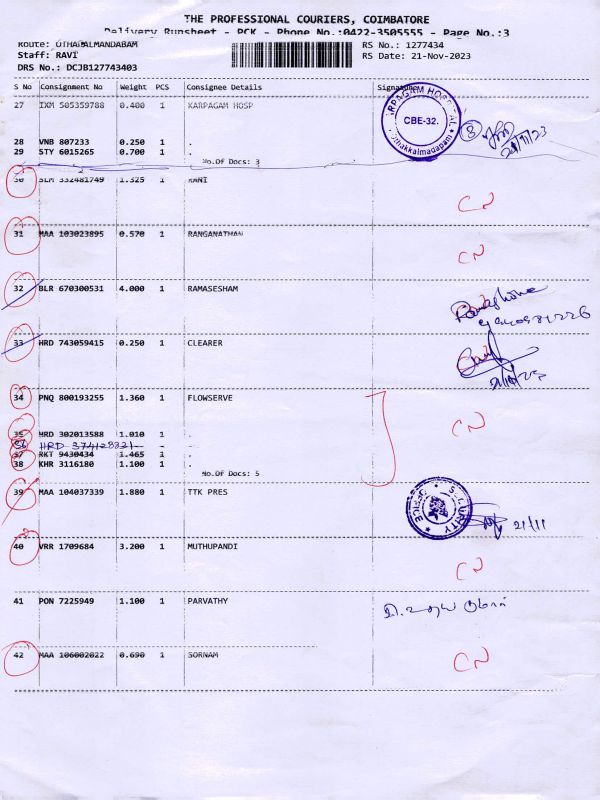 THE PROFESSIONAL COURIERS, COIMBATORE
Delivery Runsheet - PCK - Phone No.:0422-3505555 - Page No.:3
Route: OTHAKALMANDABAM RS No.: 1277434
Staff: RAVI RS Date: 21-Nov-2023
DRS No.: DCJB127743403
S No Consignment No Weight PCS Consignee Details Signature
27 IXM 505359788 0.400 1 KARPAGAM HOSP
KARPAGAM HOSPITAL
CBE-32.
Othakkalmadapam
21/11/23
28 VNB 807233 0.250 1 .
29 STY 6015265 0.700 1 .
No.Of Docs: 3
30 SLM 332481749 1.325 1 RANI
CN
31 MAA 103023895 0.570 1 RANGANATHAN
CN
32 BLR 670300531 4.000 1 RAMASESHAM
33 HRD 743059415 0.250 1 CLEARER
34 PNQ 800193255 1.360 1 FLOWSERVE
CN
35 HRD 302013588 1.010 1 .
36 HRD 374128321 - -
37 RKT 9430434 1.465 1 .
38 KHR 3116180 1.100 1 .
No.Of Docs: 5
39 MAA 104037339 1.880 1 TTK PRES
SECURITY OFFICE
21/11
40 VRR 1709684 3.200 1 MUTHUPANDI
CN
41 PON 7225949 1.100 1 PARVATHY
42 MAA 106002022 0.690 1 SORNAM
CN